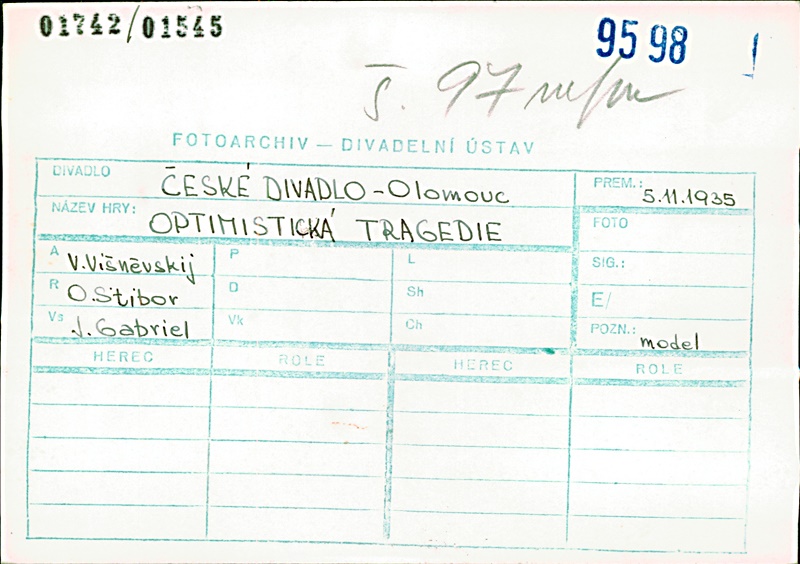 01742/01545
95 98 !
š. 97
FOTOARCHIV — DIVADELNÍ ÚSTAV
DIVADLO ČESKÉ DIVADLO - Olomouc PREM.: 5.11.1935
NÁZEV HRY: OPTIMISTICKÁ TRAGEDIE FOTO
A V. Višněvskij P L SIG.:
R O. Stibor D Sh E/
Vs J. Gabriel Vk Ch POZN.: model
HEREC ROLE HEREC ROLE